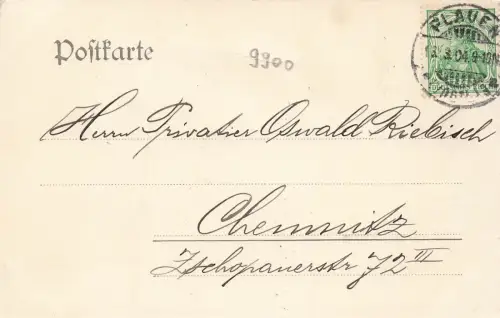 PLAUEN
Postkarte
9900
Herrn Privatier Oswald Riebisch
Chemnitz
Zschopauerstr 72 III